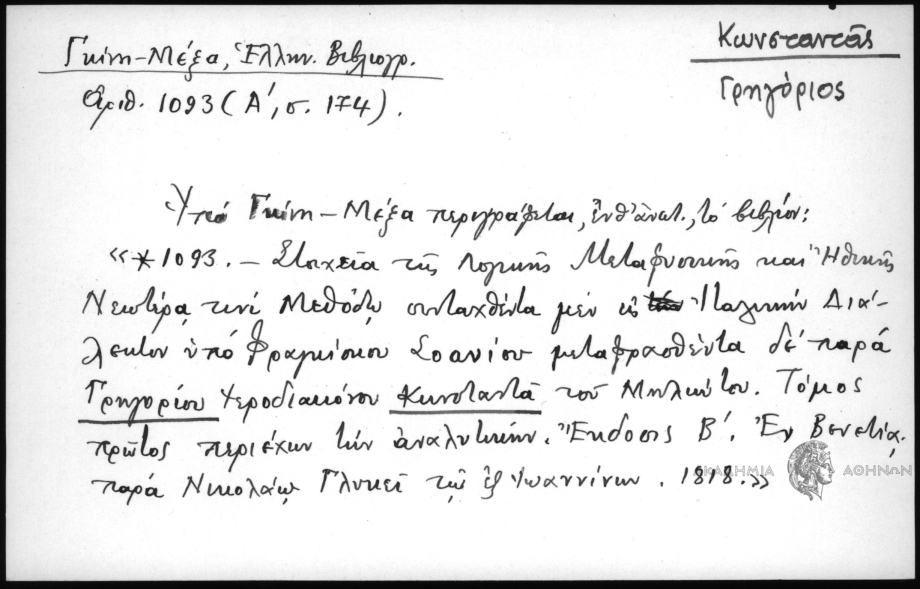 Κωνσταντᾶς
Γρηγόριος
Γκίνη-Μέξα, Ἑλλην. Βιβλιογρ.
ἀριθ. 1093 (Α', σ. 174).
Ὑπό Γκίνη-Μέξα περιγράφεται, ἐνθ' ἀνωτ., τό βιβλίον:
«*1093. - Στοιχεῖα τῆς Λογικῆς Μεταφυσικῆς καί Ἠθικῆς
Νεωτέρᾳ τινί Μεθόδῳ συνταχθέντα μέν εἰς Ἰταλικήν Διά-
λεκτον ὑπό Φραγκίσκου Σοαυίου μεταφρασθέντα δέ παρά
Γρηγορίου Ἱεροδιακόνου Κωνσταντᾶ τοῦ Μηλιώτου. Τόμος
πρῶτος περιέχων τήν ἀναλυτικήν. Ἔκδοσις Β'. Ἐν Βενετίᾳ,
παρά Νικολάῳ Γλυκεῖ τῷ ἐξ Ἰωαννίνων. 1818.»
ΑΚΑΔΗΜΙΑ ΑΘΗΝΩΝ